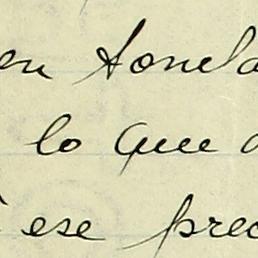 en tonela
lo que a
ese prec